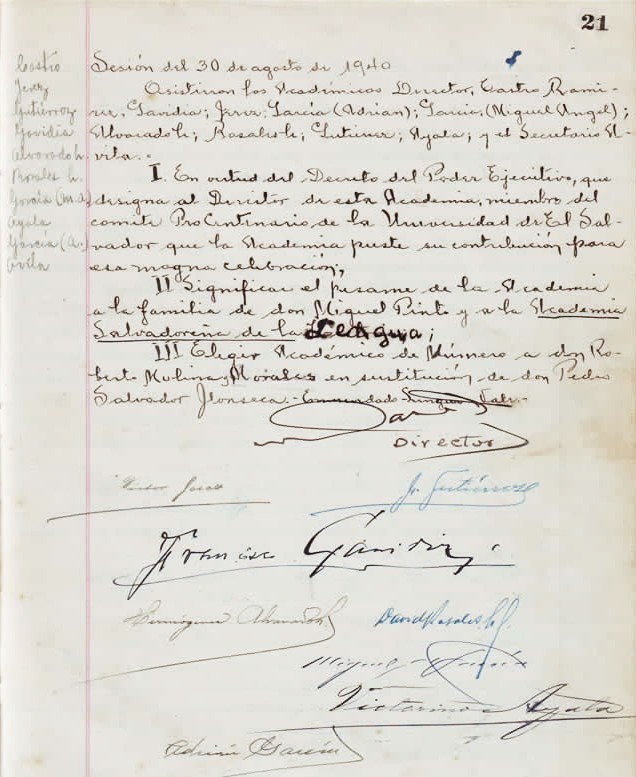 21
Castro
Jerez
Gutiérrez
Gavidia
Alvarado h.
Rosales h.
García (M.A.)
Ayala
García (A.)
Avila
Sesión del 30 de agosto de 1940
Asistieron los Académicos Director, Castro Ramí-
rez; Gavidia; Jerez; García (Adrian); García, (Miguel Angel);
Alvarado h.; Rosales h.; Gutiérrez; Ayala; y el Secretario A-
vila.-
I. En virtud del Decreto del Poder Ejecutivo, que
designa al Director de esta Academia, miembro del
comité Pro Centenario de la Universidad de El Sal-
vador que la Academia preste su contribución para
esa magna celebración;
II Significar el pesame de la Academia
a la familia de don Miguel Pinto y a la Academia
Salvadoreña de la Lengua;
III Elegir Académico de Número a don Ro-
berto Molina y Morales en sustitución de don Pedro
Salvador Fonseca.- Enmendado
Director
Jerez
Gutiérrez
Francisco Gavidia
Hermógenes Alvarado h.
David Rosales h.
Miguel A. García
Victorino Ayala
Adrián García